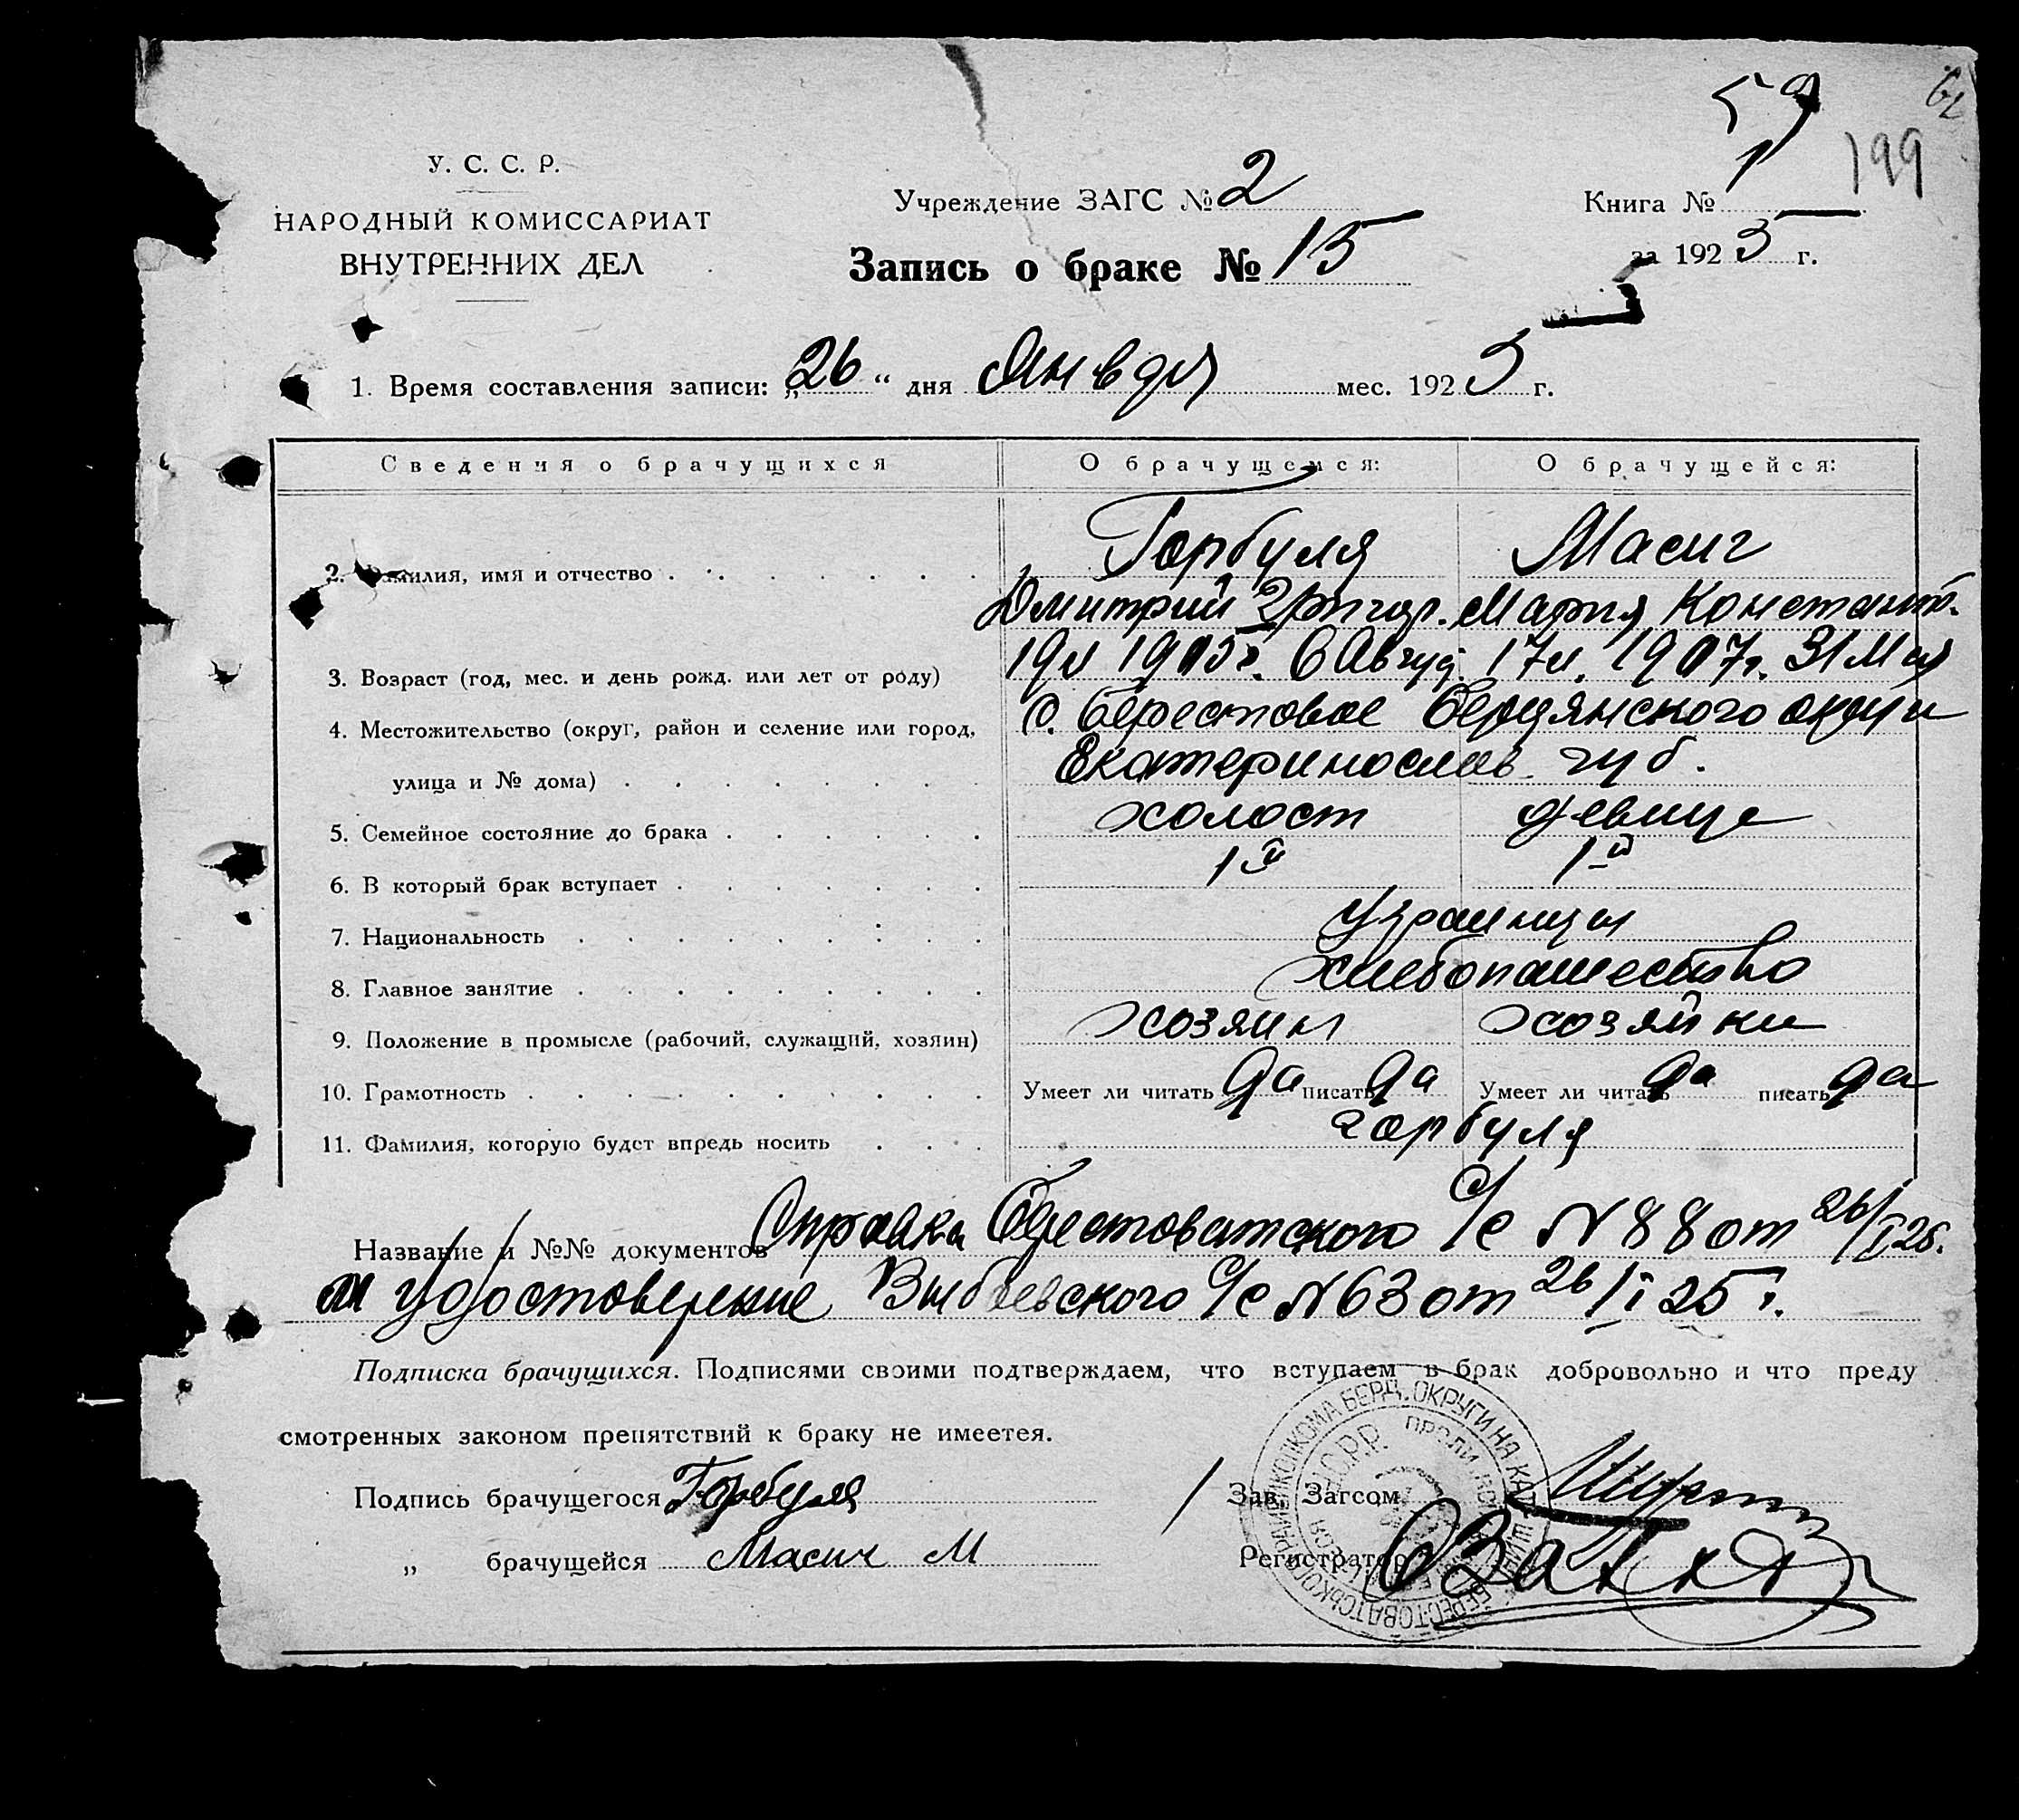 59
62
199
У. С. С. Р.
НАРОДНЫЙ КОМИССАРИАТ
ВНУТРЕННИХ ДЕЛ
Учреждение ЗАГС № 2
Книга № 1
Запись о браке № 15
за 1925 г.
1. Время составления записи: „26“ дня Января мес. 1925 г.
Сведения о брачущихся О брачущемся: О брачущейся:
Горбуля Масич
2. Фамилия, имя и отчество
Дмитрий Григор. Мария Констант.
3. Возраст (год, мес. и день рожд. или лет от роду) 19 л 1905 г. 6 Август. 17 л. 1907 г. 31 Мая
4. Местожительство (округ, район и селение или город, С. Берестовое Бердянского округа
улица и № дома) Екатеринослав. губ.
5. Семейное состояние до брака холост девица
6. В который брак вступает 1й 1й
7. Национальность Украинцы
8. Главное занятие хлебопашество
9. Положение в промысле (рабочий, служащий, хозяин) хозяин хозяйка
10. Грамотность Умеет ли читать да писать да Умеет ли читать да писать да
11. Фамилия, которую будет впредь носить Горбуля
Название и №№ документов Справка Берестоватского С/С N 88 от 26/I 25.
и удостоверение С/С N 63 от 26/I 25 г.
Подписка брачущихся. Подписями своими подтверждаем, что вступаем в брак добровольно и что преду
смотренных законом препятствий к браку не имеется.
Подпись брачущегося Горбуля Зав. Загсом
„ брачущейся Масич М Регистратор
БЕРЕСТОВАТСЬКОГО РАЙВИКОНКОМА БЕРД. ОКРУГИ НА КАТ-ЩИНІ
У.С.Р.Р.